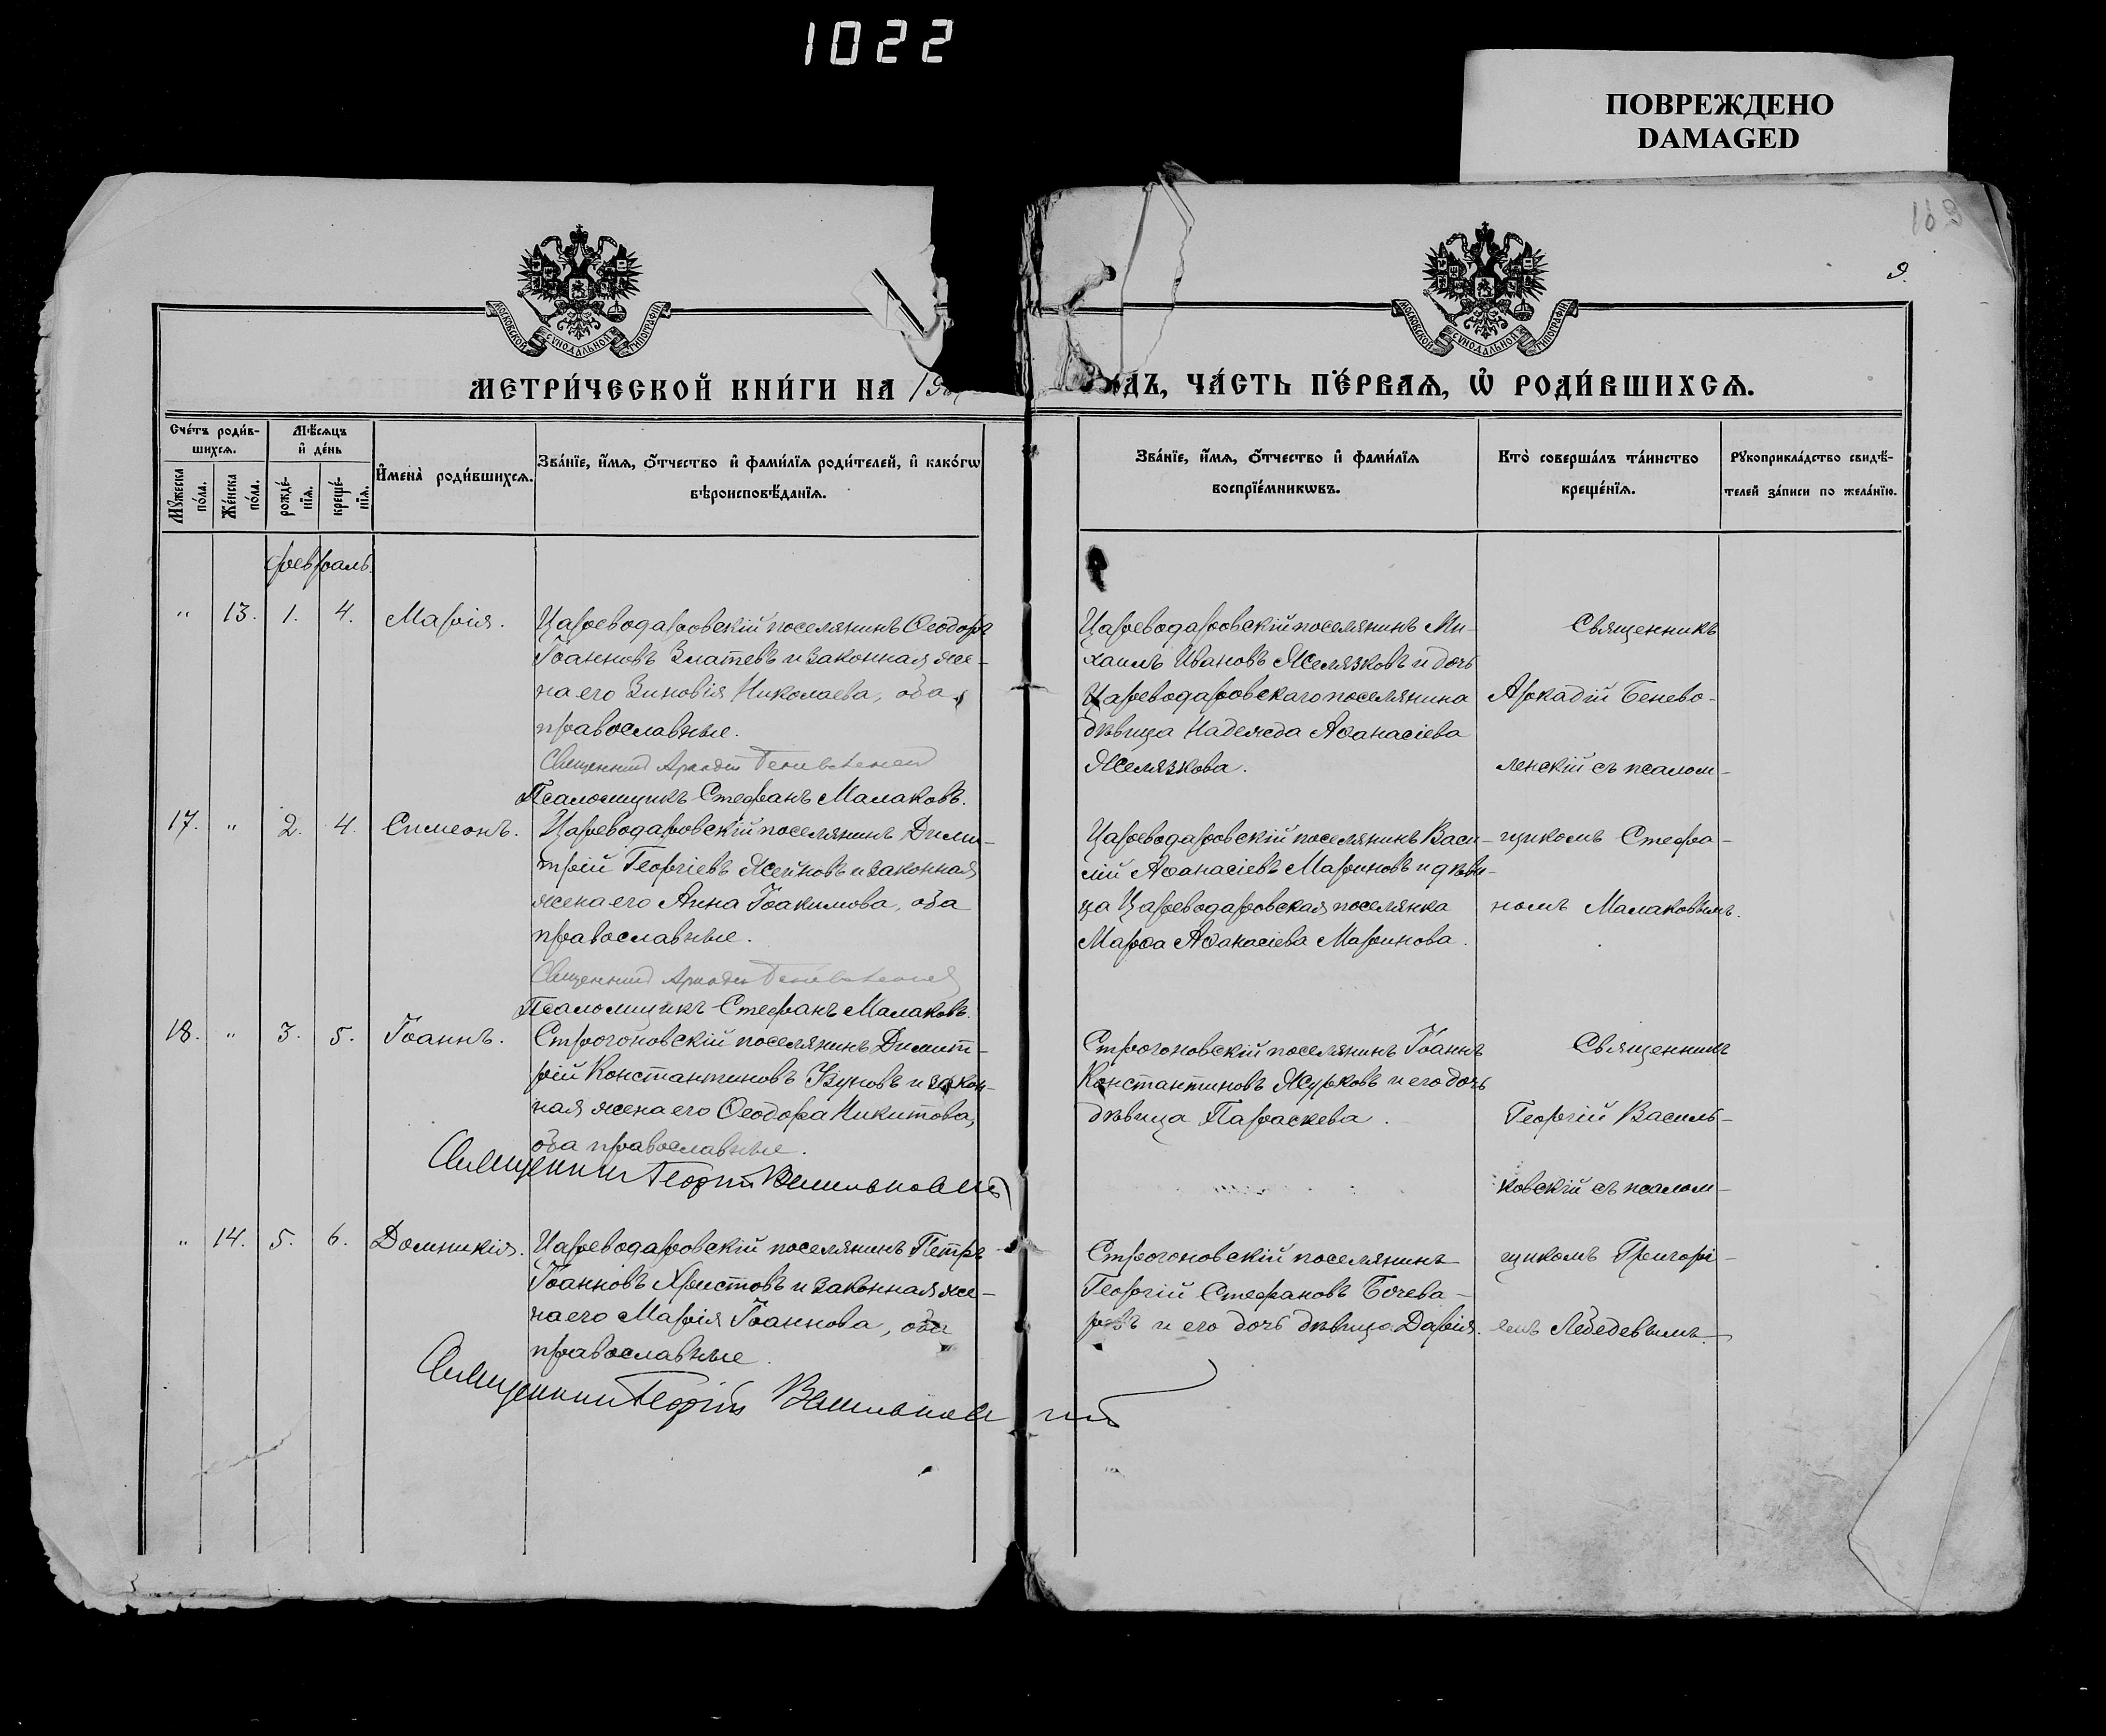 1022
ПОВРЕЖДЕНО
DAMAGED
168
9.
МОСКОВСКОЙ СѴНОДАЛЬНОЙ ТИПОГРАФІИ
МОСКОВСКОЙ СѴНОДАЛЬНОЙ ТИПОГРАФІИ
МЕТРИ́ЧЕСКОЙ КНИ́ГИ НА 19
ДЪ, ЧА́СТЬ ПЕ́РВАѦ, Ѡ҆ РОДИ́ВШИХСѦ.
Сче́тъ роди́в-
шихсѧ.
Мꙋ́жеска по́ла.
Же́нска по́ла.
Мѣ́сѧцъ
и҆ де́нь
рожде́-
нїѧ.
креще́-
нїѧ.
И҆мена̀ роди́вшихсѧ.
Зва́нїе, и҆́мѧ, ѻ҆́тчество и҆ фами́лїѧ роди́телей, и҆ како́гѡ
вѣроисповѣ́данїѧ.
Зва́нїе, и҆́мѧ, ѻ҆́тчество и҆ фами́лїѧ
воспрїе́мникѡвъ.
Кто̀ соверша́лъ та́инство
креще́нїѧ.
Рꙋкоприкла́дство свидѣ́-
телей за́писи по жела́нїю.
февраль.
" 13. 1. 4. Марія.
Цареводаровскій поселянинъ Ѳеодоръ
Іоанновъ Златевъ и законная же-
на его Зиновія Николаева, оба
православные.
Священникъ Аркадій Беневоленскій
Псаломщикъ Стефанъ Малаковъ.
Цареводаровскій поселянинъ Ми-
хаилъ Ивановъ Желязковъ и дочь
Цареводаровскаго поселянина
дѣвица Надежда Аѳанасіева
Желязкова.
Священникъ
Аркадій Бенево-
ленскій съ псалом-
17. " 2. 4. Симеонъ.
Цареводаровскій поселянинъ Дими-
трій Георгіевъ Жейновъ и законная
жена его Анна Іоакимова, оба
православные.
Священникъ Аркадій Беневоленскій
Псаломщикъ Стефанъ Малаковъ.
Цареводаровскій поселянинъ Васи-
лій Аѳанасіевъ Мариновъ и дѣви-
ца Царевадаровская поселянка
Марѳа Аѳанасіева Маринова.
щикомъ Стефа-
номъ Малаковымъ.
18. " 3. 5. Іоаннъ.
Строгоновскій поселянинъ Димит-
рій Константиновъ и закон-
ная жена его Ѳеодора Никитова,
оба православные.
Священникъ Георгій Васильковскій
Строгоновскій поселянинъ Іоаннъ
Константиновъ Журковъ и его дочь
дѣвица Параскева.
Священникъ
Георгій Василь-
ковскій съ псалом-
" 14. 5. 6. Домникія.
Цареводаровскій поселянинъ Петръ
Іоанновъ Христовъ и законная же-
на его Марія Іоаннова, оба
православные.
Священникъ Георгій Васильковскій
Строгоновскій поселянинъ
Георгій Стефановъ Бочева-
ровъ и его дочь дѣвица Дарія.
щикомъ Григорі-
емъ Лебедевымъ.